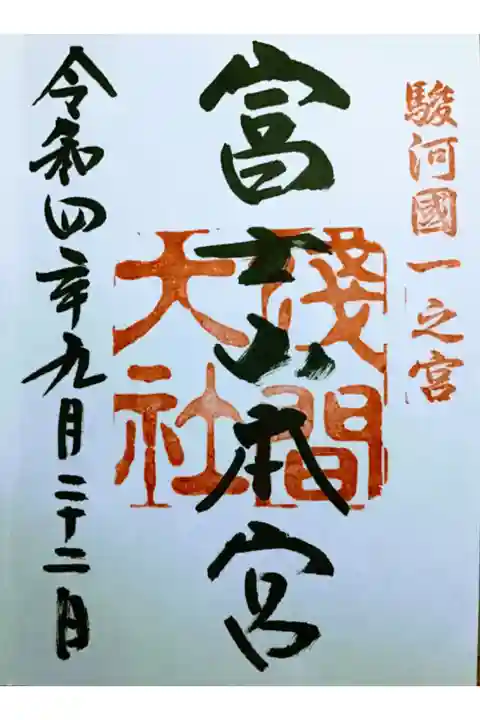 駿河國一之宮
冨士山本宮
淺間
大社
令和四年九月二十二日